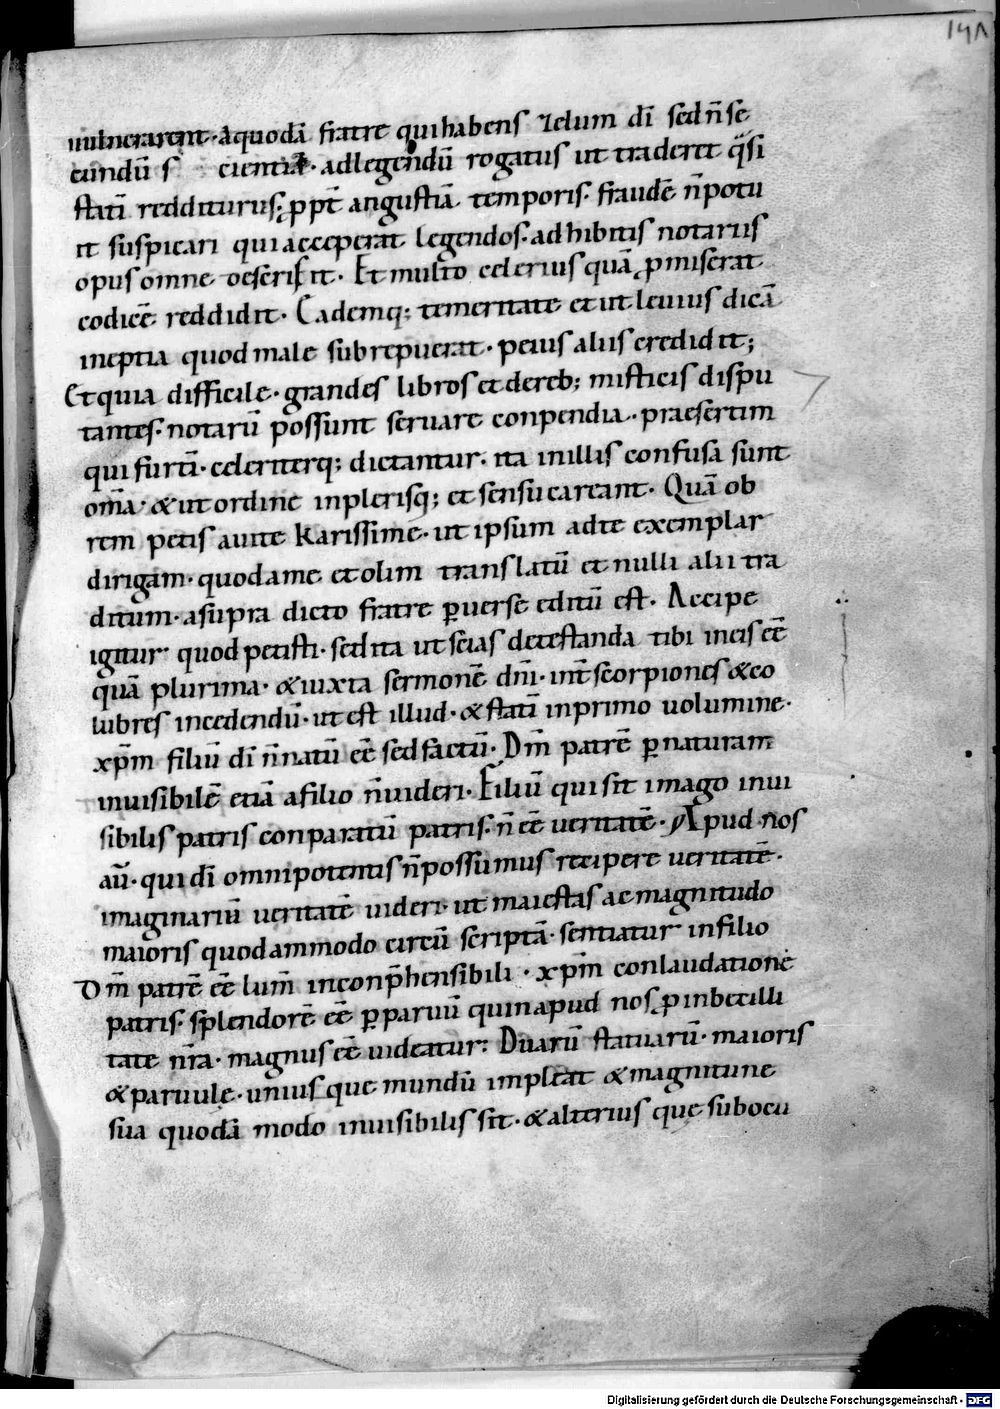 141
uulnerarent·Aquodā fratre quihabens zelum dī sed n̄ se
cundū s cientiā· adlegendū rogatus ut traderet q̄si
statī redditurus; ꝓpt̄ angustiā temporis· fraudē n̄ potu
it suspicari quiacceperat legendos· adhibitis notariis
opus omne descripsit· Et multo celerius quā ꝓmiserat
codicē reddidit· Eademq; temeritate et ut leuius dicā
ineptia quod male subrepuerat· peius aliis credidit;
Et quia difficile· grandes libros et dereb; misticis dispu
tantes· notarū possunt seruare conpendia· praesertim
qui furtī· celeriterq; dictantur· ita inillis confusa sunt
om̄a· & ut ordine inplerisq; et sensu careant· Quā ob
rem petis auite karissime· ut ipsum adte exemplar
dirigam· quodame et olim translatū et nulli alii tra
ditum· asupra dicto fratre ꝑuerse editū est· Accipe
igitur quod petisti· sed ita ut scias detestanda tibi ineis eē
quā plurima· & iuxta sermonē dn̄i· int̄ scorpiones & co
lubres incedendū· ut est illud· & statī inprimo uolumine·
xp̄m filiū dī n̄ natū eē sed factū· Dm̄ patrē ꝑ naturam
inuisibilē etiā afilio n̄ uideri· Filiū qui sit imago inui
sibilis patris conparatū patris· n̄ eē ueritatē· Apud nos
aū· qui dī omnipotentis n̄ possumus recipere ueritatē·
imaginariū ueritatē uideri· ut maiestas ac magnitudo
maioris quodammodo circū scripta· sentiatur infilio
Dm̄ patrē eē lum̄ inconp̄hensibili· xp̄m conlaudationē
patris· splendorē eē ꝑparuū quinapud nos ꝓinbecilli
tate nr̄a· magnus eē uideatur· Duarū statuarū· maioris
& paruule· unius que mundū impleat & magnitune
sua quodā modo inuisibilis sit· & alterius que subocu
Digitalisierung gefördert durch die Deutsche Forschungsgemeinschaft - DFG